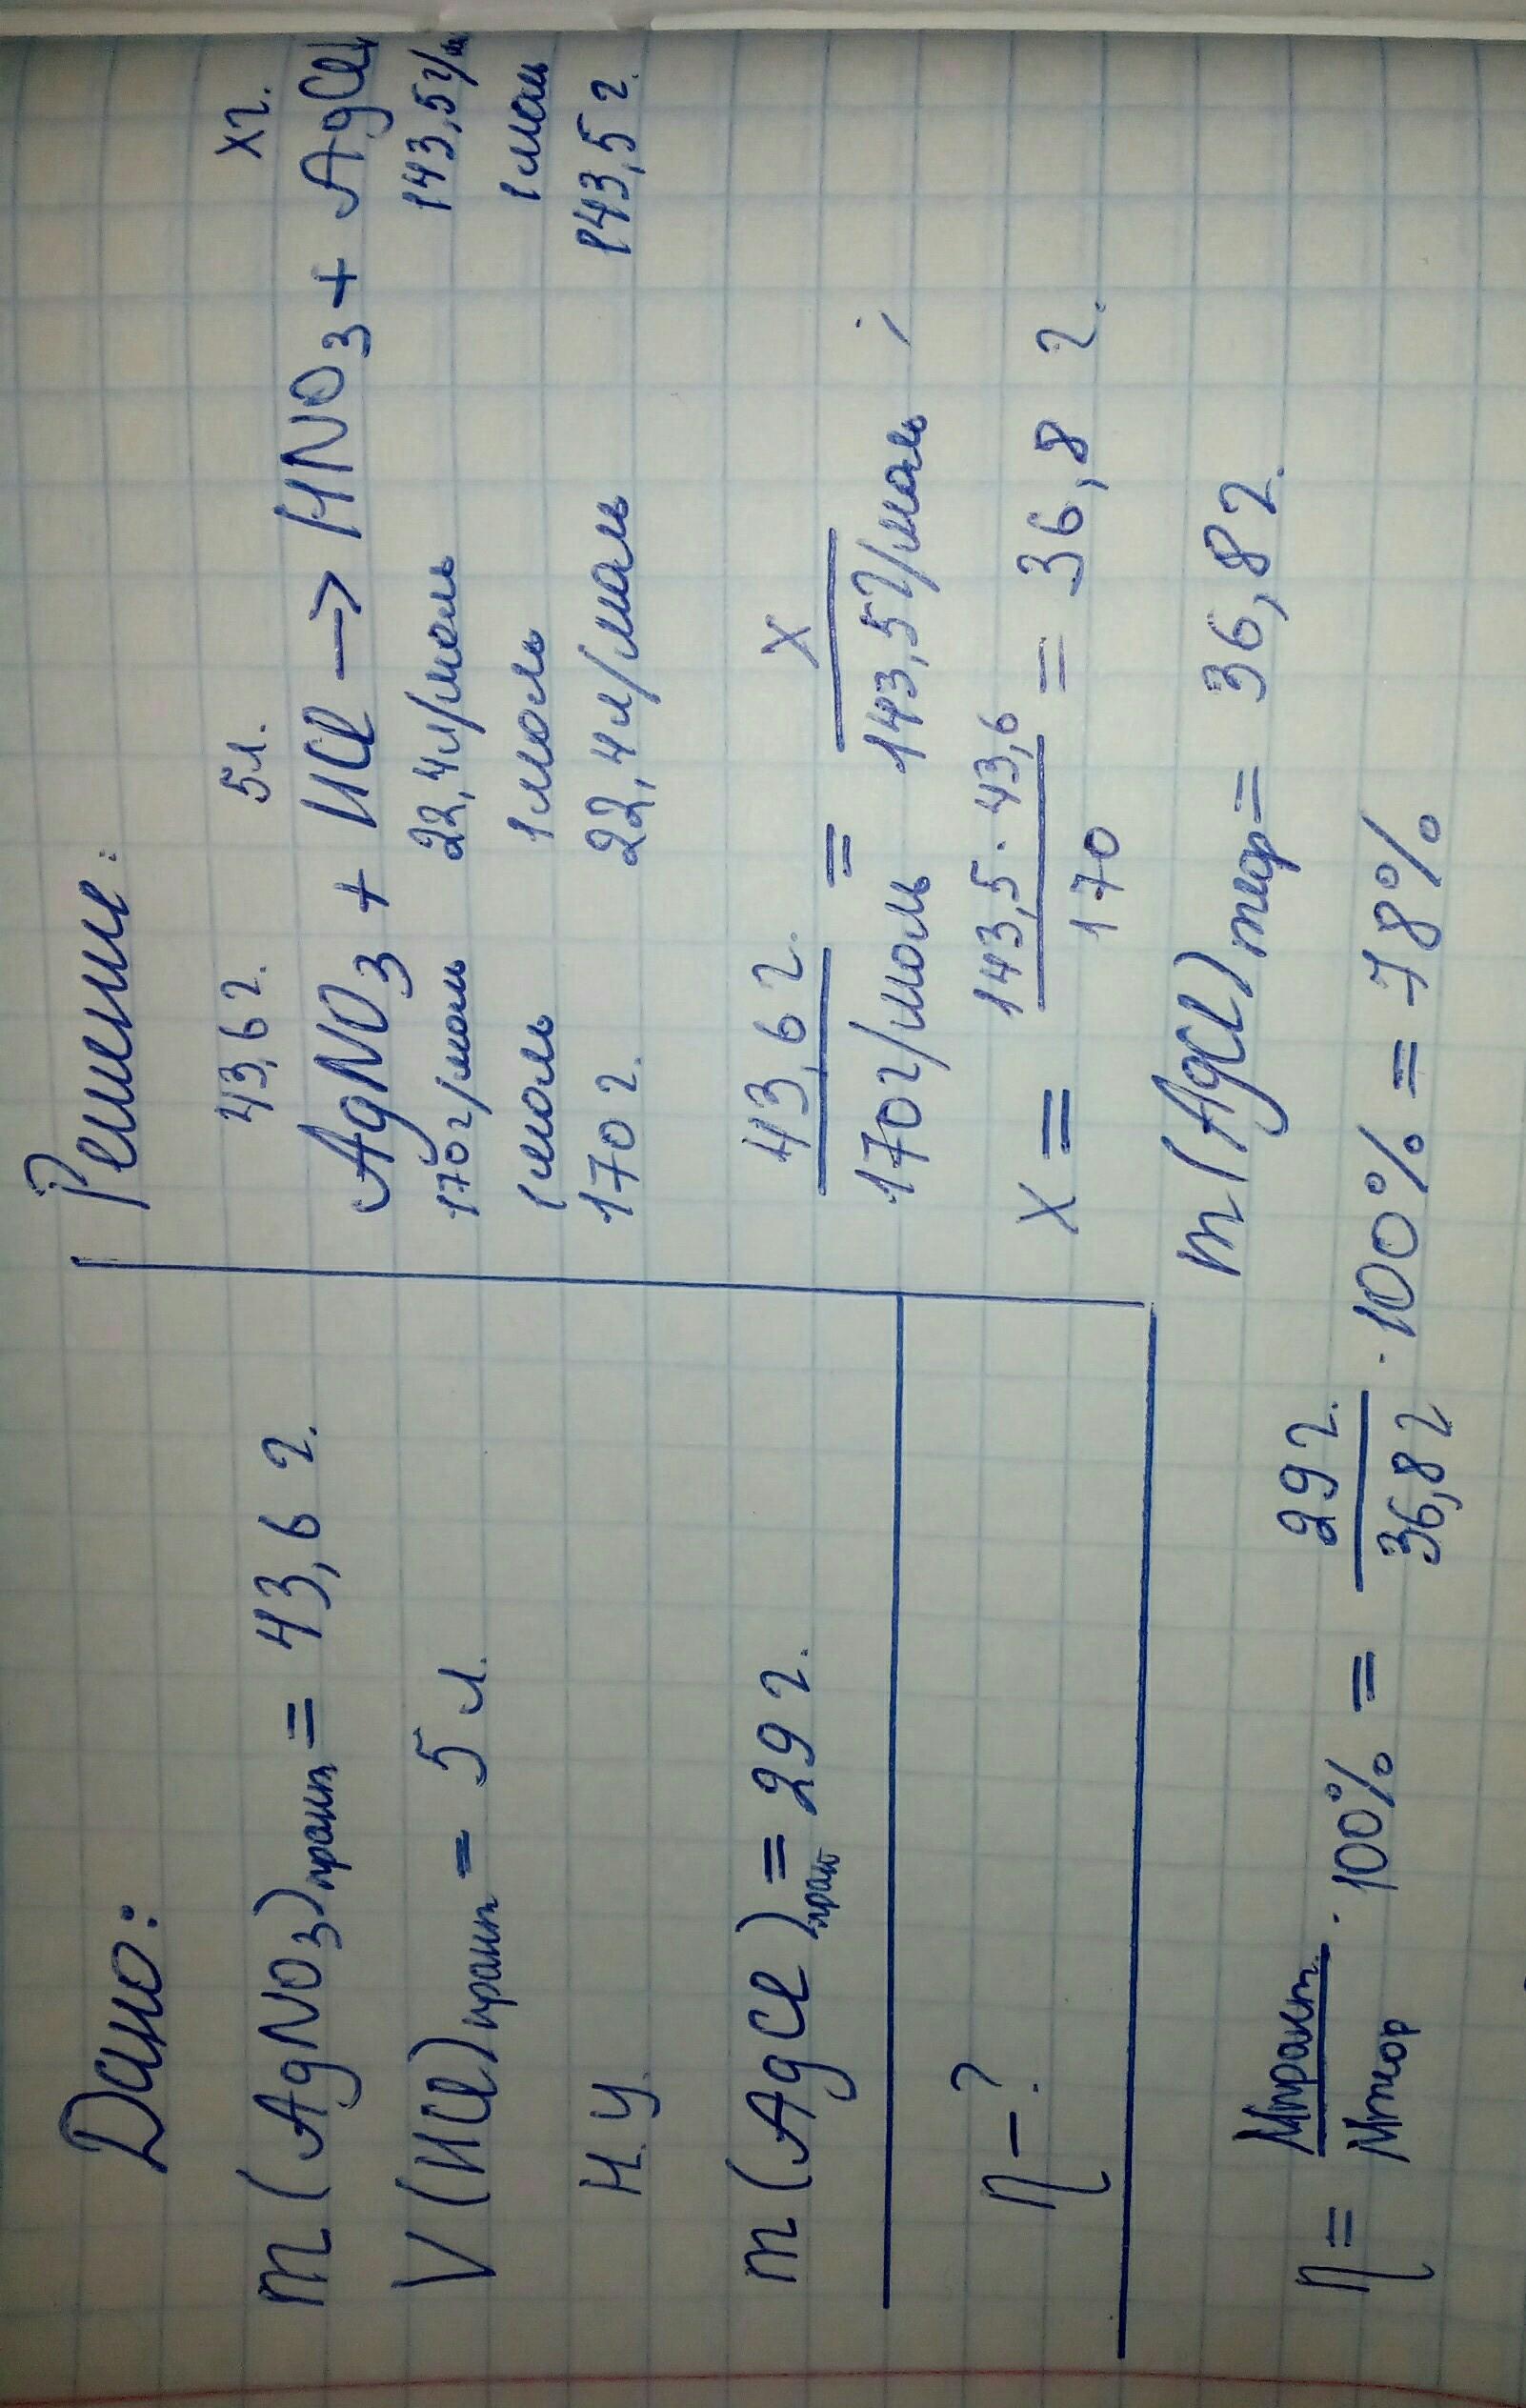 Дано:
m(AgNO3)практ = 43,6 г.
V(HCl)практ = 5 л.
н.у.
m(AgCl)прак = 29 г.
η - ?
Решение:
43,6 г. 5 л. x г.
AgNO3 + HCl → HNO3 + AgCl↓
170 г/моль 22,4 л/моль 143,5 г/м
1 моль 1 моль 1 моль
170 г. 22,4 л/моль 143,5 г.
43,6 г. / 170 г/моль = x / 143,5 г/моль ;
x = 143,5 · 43,6 / 170 = 36,8 г.
m(AgCl)теор = 36,8 г.
η = Mпракт. / Mтеор · 100% = 29 г. / 36,8 г · 100% = 78%